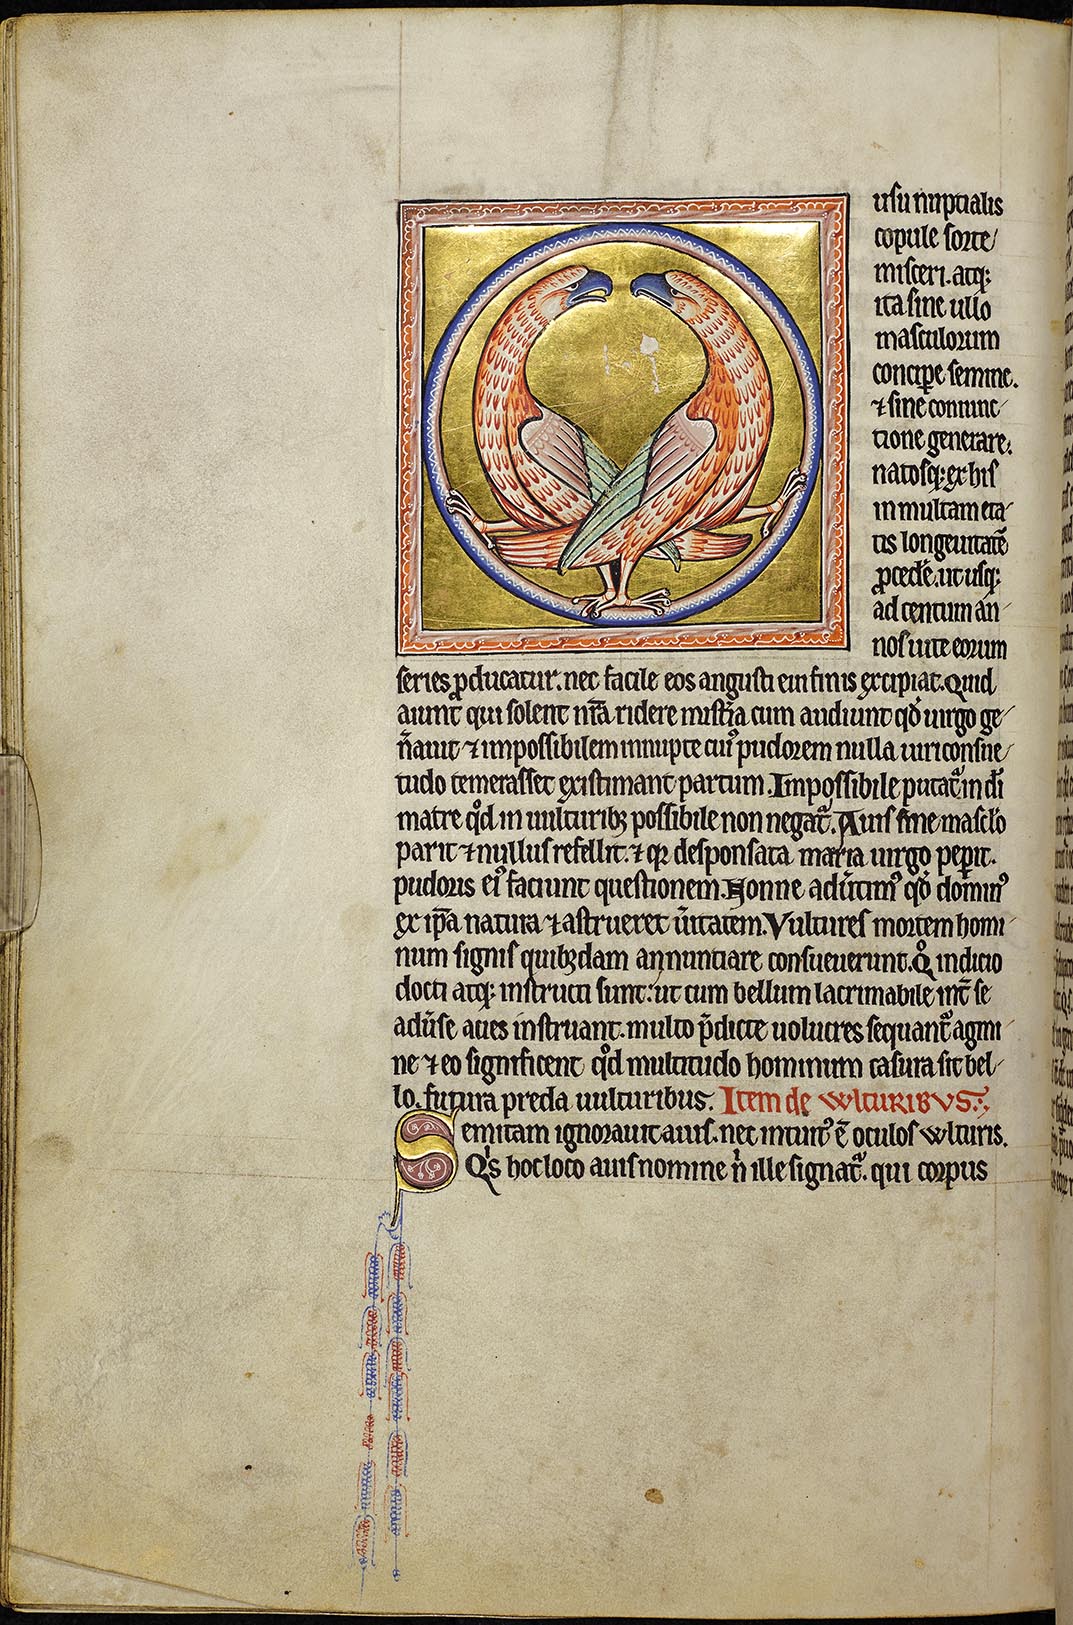 usu nuptialis
copule sorte
misceri. atq;
ita sine ullo
masculorum
concipe semine.
⁊ sine coniunc
tione generare.
natosq; ex his
in multam eta
tis longeuitatē
ꝓcedē. ut usq;
ad centum an
nos uite eorum
series ꝓducatur. nec facile eos angusti eui finis excipiat. Quid
aiunt qui solent nr̄a ridere mist̄ia cum audiunt qd̄ uirgo ge
n̄auit ⁊ impossibilem innupte cui᾽ pudorem nulla uiri consue
tudo temerasset existimant partum. Impossibile putat᷑ in dī
matre qd̄ in uulturib; possibile non negat᷑. Auis sine masclo
parit ⁊ nullus refellit. ⁊ q̄ desponsata maria uirgo pepit.
pudoris ei᾽ faciunt questionem. Nonne adūtim᾽ qd̄ domin᾽
ex ip̄a natura ⁊ astrueret ūitatem. Vultures mortem homi
num signis quib;dam annuntiare consueuerunt. Qͦ indicio
docti atq; instructi sunt. ut cum bellum lacrimabile int̄ se
adūse acies instruant. multo p̄dicte uolucres sequant᷑ agmi
ne ⁊ eo significent qd̄ multitudo hominum casura sit bel
lo. futura preda uulturibus. Item de wlturibus.
Semitam ignorauit auis. nec intuit᾽ ē oculos wlturis.
Qͥs hoc loco auis nomine n̄ ille signat᷑. qui corpus